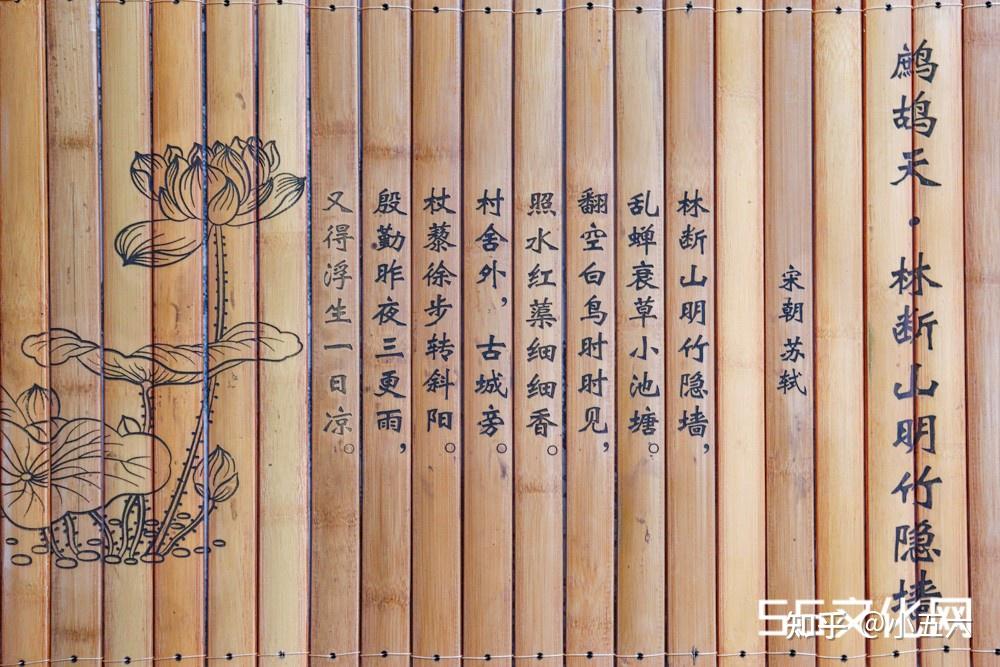 鹧鸪天·林断山明竹隐墙
宋朝 苏轼
林断山明竹隐墙，
乱蝉衰草小池塘。
翻空白鸟时时见，
照水红蕖细细香。
村舍外，古城旁。
杖藜徐步转斜阳。
殷勤昨夜三更雨，
又得浮生一日凉。
56文化网
知乎 @小五六